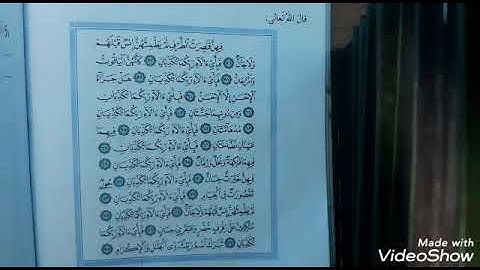 قال الله تعالى:
فِيهِنَّ قَٰصِرَٰتُ ٱلطَّرْفِ لَمْ يَطْمِثْهُنَّ إِنسٌ قَبْلَهُمْ
وَلَا جَآنٌّ فَبِأَيِّ ءَالَآءِ رَبِّكُمَا تُكَذِّبَانِ كَأَنَّهُنَّ ٱلْيَاقُوتُ
وَٱلْمَرْجَانُ فَبِأَيِّ ءَالَآءِ رَبِّكُمَا تُكَذِّبَانِ هَلْ جَزَآءُ
ٱلْإِحْسَٰنِ إِلَّا ٱلْإِحْسَٰنُ فَبِأَيِّ ءَالَآءِ رَبِّكُمَا تُكَذِّبَانِ
وَمِن دُونِهِمَا جَنَّتَانِ فَبِأَيِّ ءَالَآءِ رَبِّكُمَا تُكَذِّبَانِ
مُدْهَآمَّتَانِ فَبِأَيِّ ءَالَآءِ رَبِّكُمَا تُكَذِّبَانِ فِيهِمَا
عَيْنَانِ نَضَّاخَتَانِ فَبِأَيِّ ءَالَآءِ رَبِّكُمَا تُكَذِّبَانِ
فِيهِمَا فَٰكِهَةٌ وَنَخْلٌ وَرُمَّانٌ فَبِأَيِّ ءَالَآءِ رَبِّكُمَا تُكَذِّبَانِ
فِيهِنَّ خَيْرَٰتٌ حِسَانٌ فَبِأَيِّ ءَالَآءِ رَبِّكُمَا تُكَذِّبَانِ حُورٌ
مَّقْصُورَٰتٌ فِي ٱلْخِيَامِ فَبِأَيِّ ءَالَآءِ رَبِّكُمَا تُكَذِّبَانِ
لَمْ يَطْمِثْهُنَّ إِنسٌ قَبْلَهُمْ وَلَا جَآنٌّ فَبِأَيِّ ءَالَآءِ رَبِّكُمَا تُكَذِّبَانِ
مُتَّكِـِٔينَ عَلَىٰ رَفْرَفٍ خُضْرٍ وَعَبْقَرِيٍّ حِسَانٍ فَبِأَيِّ ءَالَآءِ رَبِّكُمَا
تُكَذِّبَانِ تَبَٰرَكَ ٱسْمُ رَبِّكَ ذِي ٱلْجَلَٰلِ وَٱلْإِكْرَامِ
Made with
VideoShow